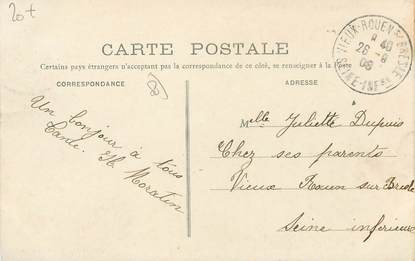 20+
CARTE POSTALE
Certains pays étrangers n'acceptant pas la correspondance de ce côté, se renseigner à la Poste
CORRESPONDANCE
ADRESSE
VIEUX-ROUEN-S-BRESLE
8 40
26 -8
06
SEINE-INFRE
Un bonjour à tous
Tante. H. Moratin
Melle Juliette Dupuis
Chez ses parents
Vieux Rouen sur Bresle
Seine inférieure